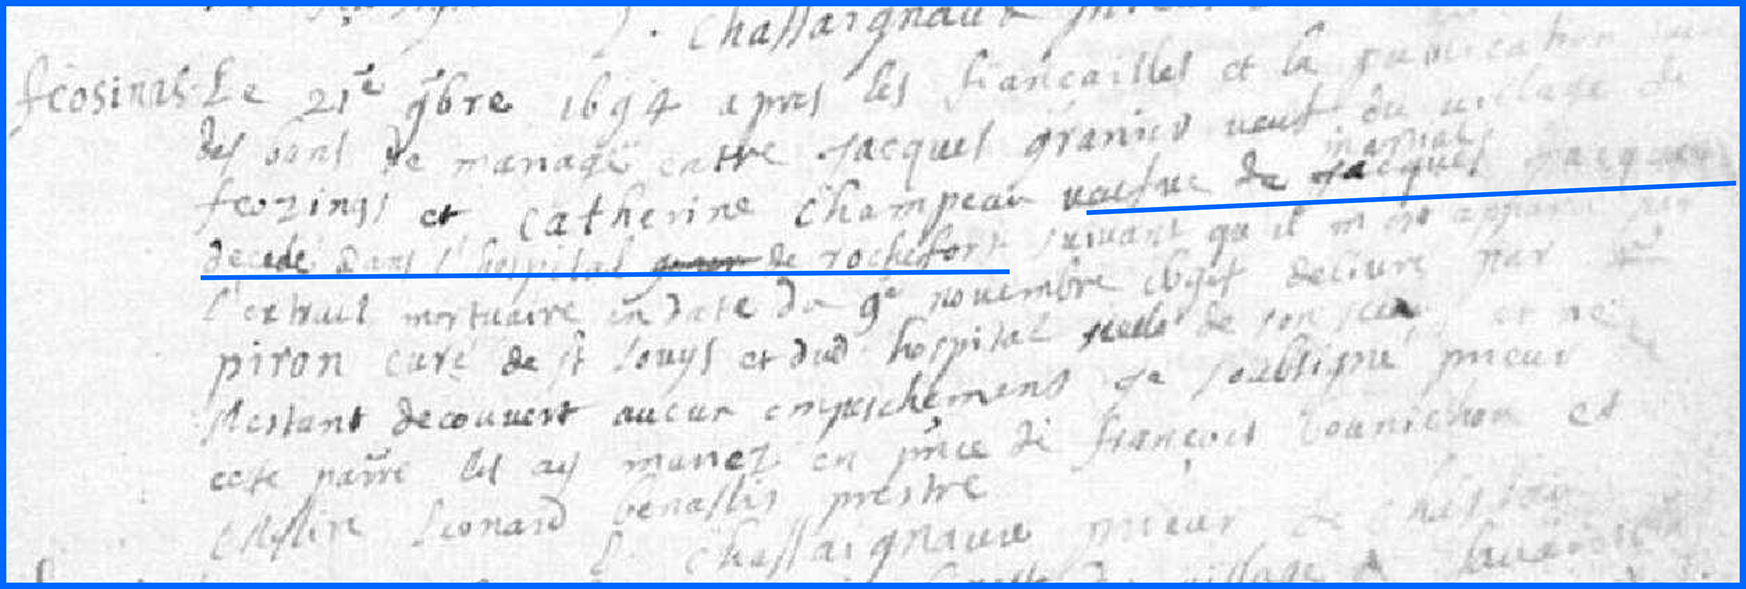 Chassaignaux
feosines Le 21e 9bre 1694 apres les fiancailles et la publication
des bans de mariage entre Jacques Granier veuf du village de
martial
feozings et Catherine Champeau vaefve de Jacques Jacques
decedé dans l'hospital de rochefort suivant qu il m est apparu par
l'extrait mortuaire en date du 9e novembre delivre par
piron curé de st Louys et dud hospital scelle de son sceau et ne
s'estant decouvert aucun empeschement je soubsigné prieur
ceste les ay mariez en de François et
Leonard benassis prestre
Chassaignaux prieur de
village